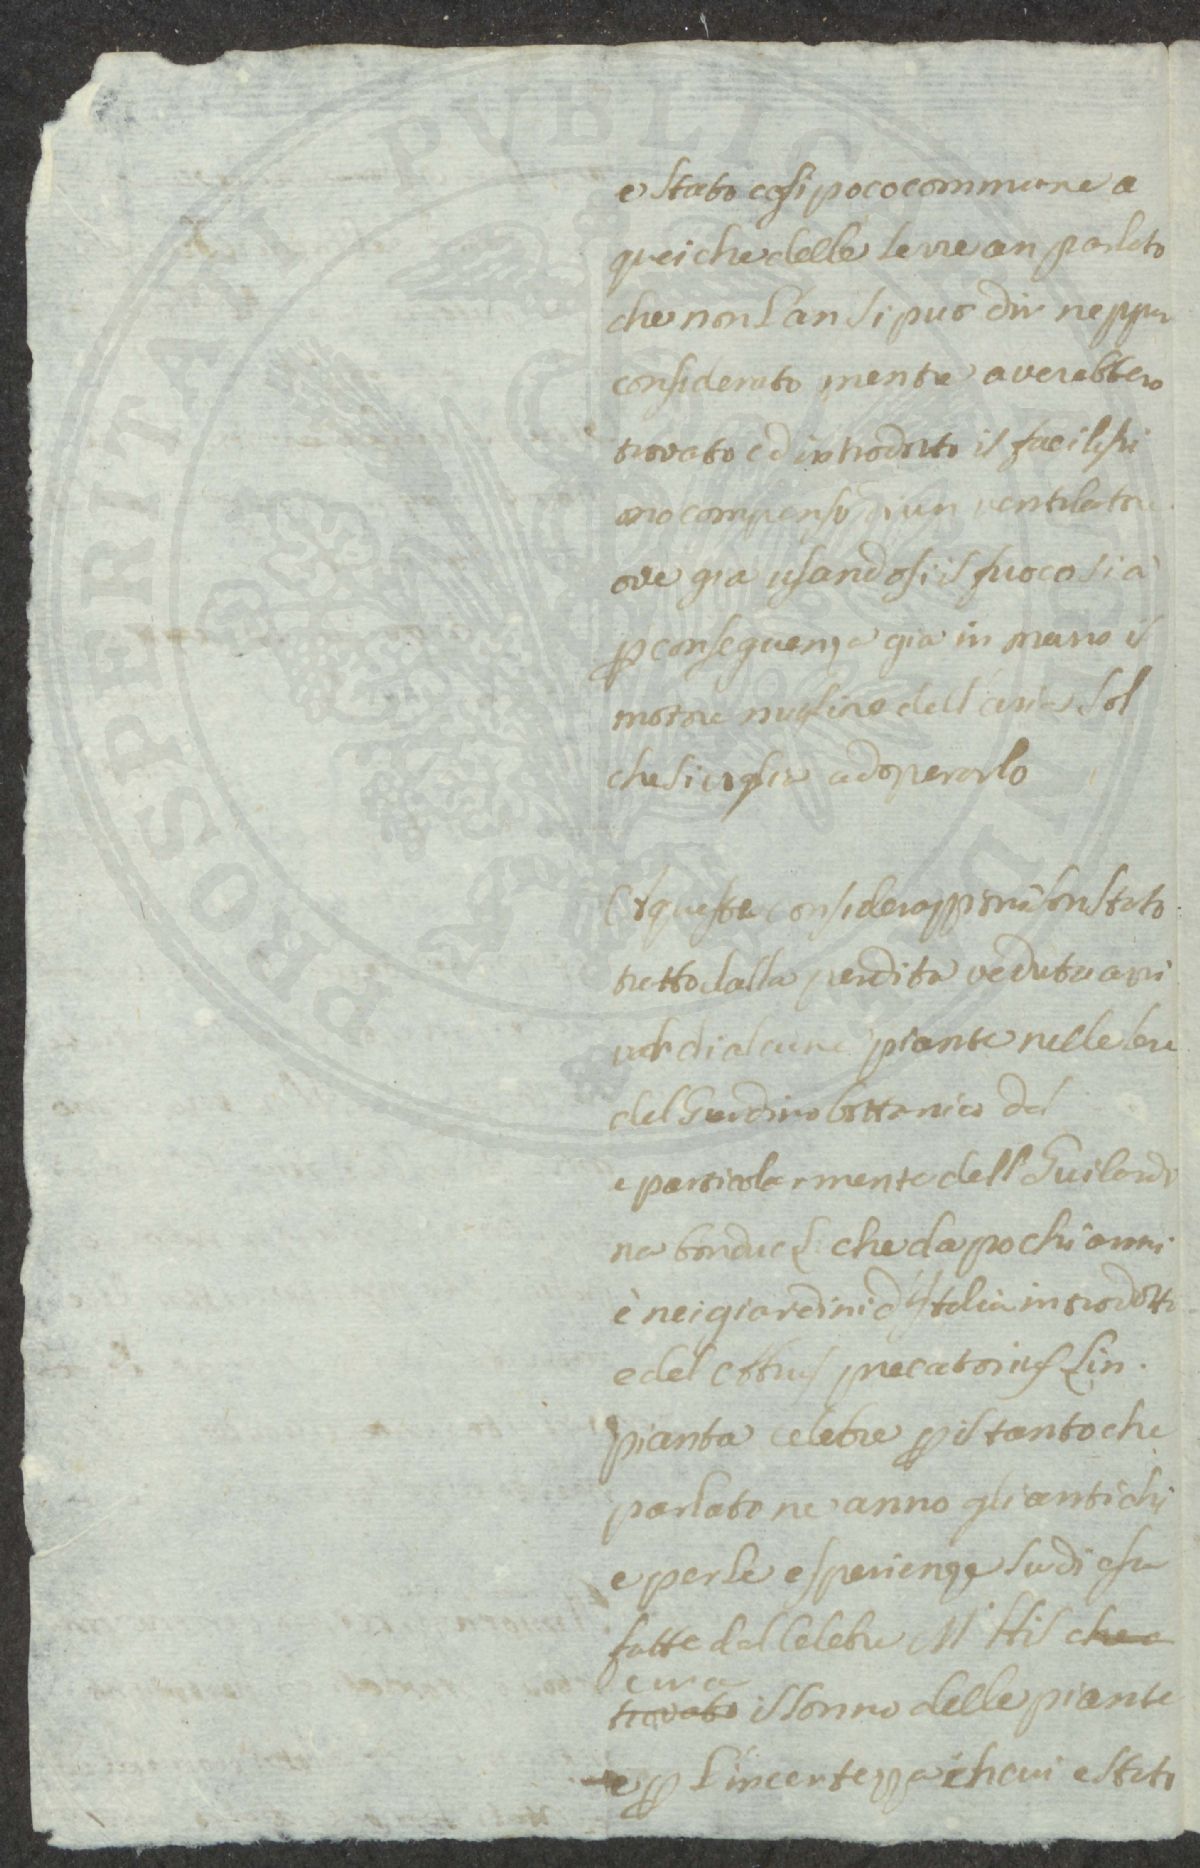 e stato cosi poco commune a
quei che delle terre an parlato
che non l'an si può dir neppur
considerato mentre averebbero
trovato ed introdotto il facilissi
mo compenso di un ventilatore
ove gia usandosi il fuoco si à
p conseguenza gia in mano il
motore massimo dell'aria sol
che si voglia adoperarlo
queste considerazzioni son stato
tratto dalla perdita veduta arri
di alcune piante nelle
del Giardino bottanico del
e particolarmente dell Guilandi
na bonduc L. che da pochi anni
è nei giardini d'Italia introdotta
e del Abrus precatorius Lin.
pianta celebre p il tanto che
parlato ne anno gli antichi
e per le esperienze su di essa
fatte dal celebre Mr Hil che a
circa
trovato il sonno delle piante
e p l'incertezza che vi e stato
PROSPERITATI PUBLICAE